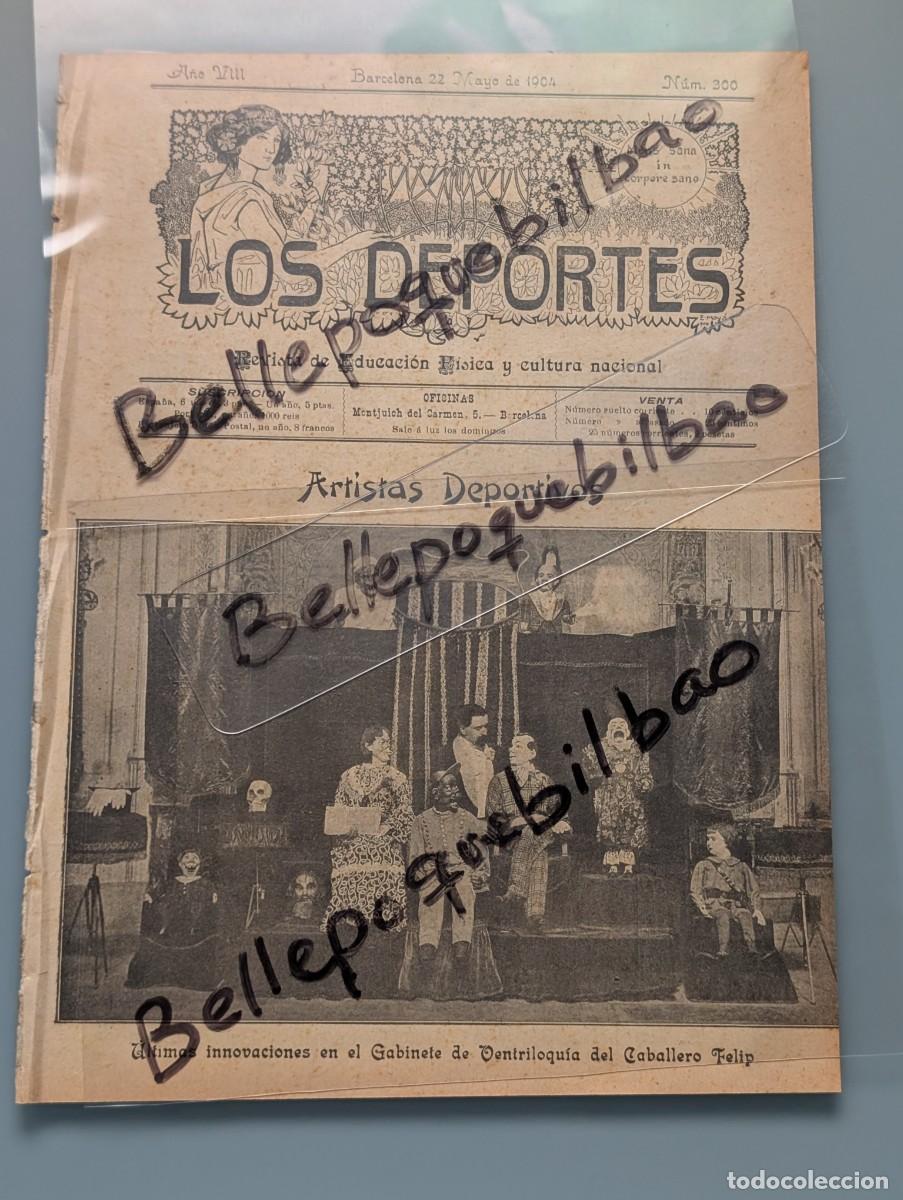 Año VIII Barcelona 22 Mayo de 1904 Núm. 300
sana
in
corpore sano
LOS DEPORTES
Revista de Educación Física y cultura nacional
SUSCRIPCION
España, 6 Un año, 5 ptas.
Postal, un año, 8 francos
OFICINAS
Montjuich del Carmen, 5.— Barcelona
Sale á luz los domingos
VENTA
Número suelto corriente . . 10 céntimos
Número » atrasado céntimos
25 números corrientes, pesetas
Bellepoquebilbao
Artistas Deportivos
Bellepoquebilbao
Bellepoquebilbao
Últimas innovaciones en el Gabinete de Ventriloquía del Caballero Felip
todocoleccion